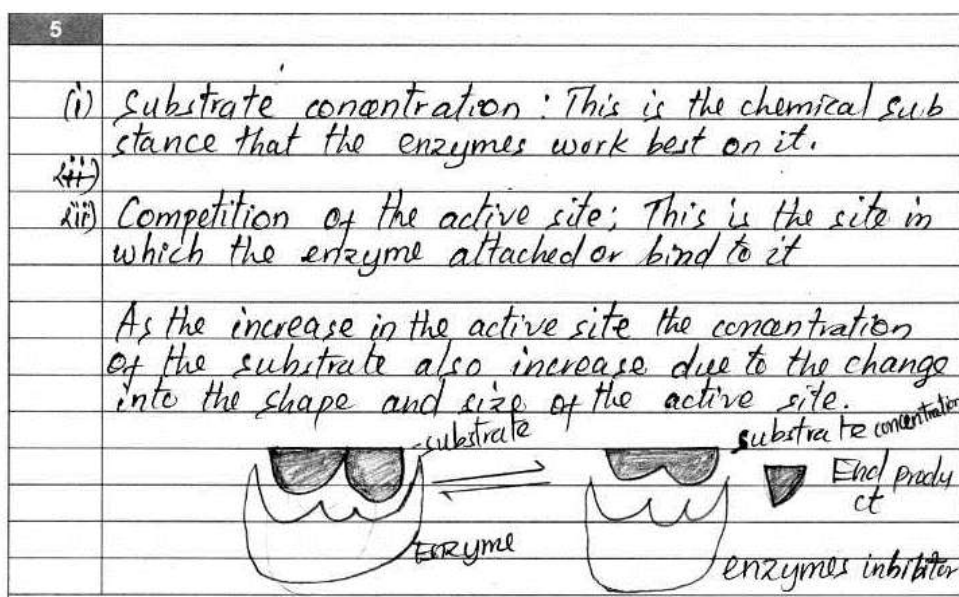 5
(i) Substrate concentration : This is the chemical sub
stance that the enzymes work best on it.
(ii)
(ii) Competition of the active site; This is the site in
which the enzyme attached or bind to it
As the increase in the active site the concentration
of the substrate also increase due to the change
into the shape and size of the active site.
substrate
substrate concentration
End produ
ct
Enzyme
enzymes inhibitor